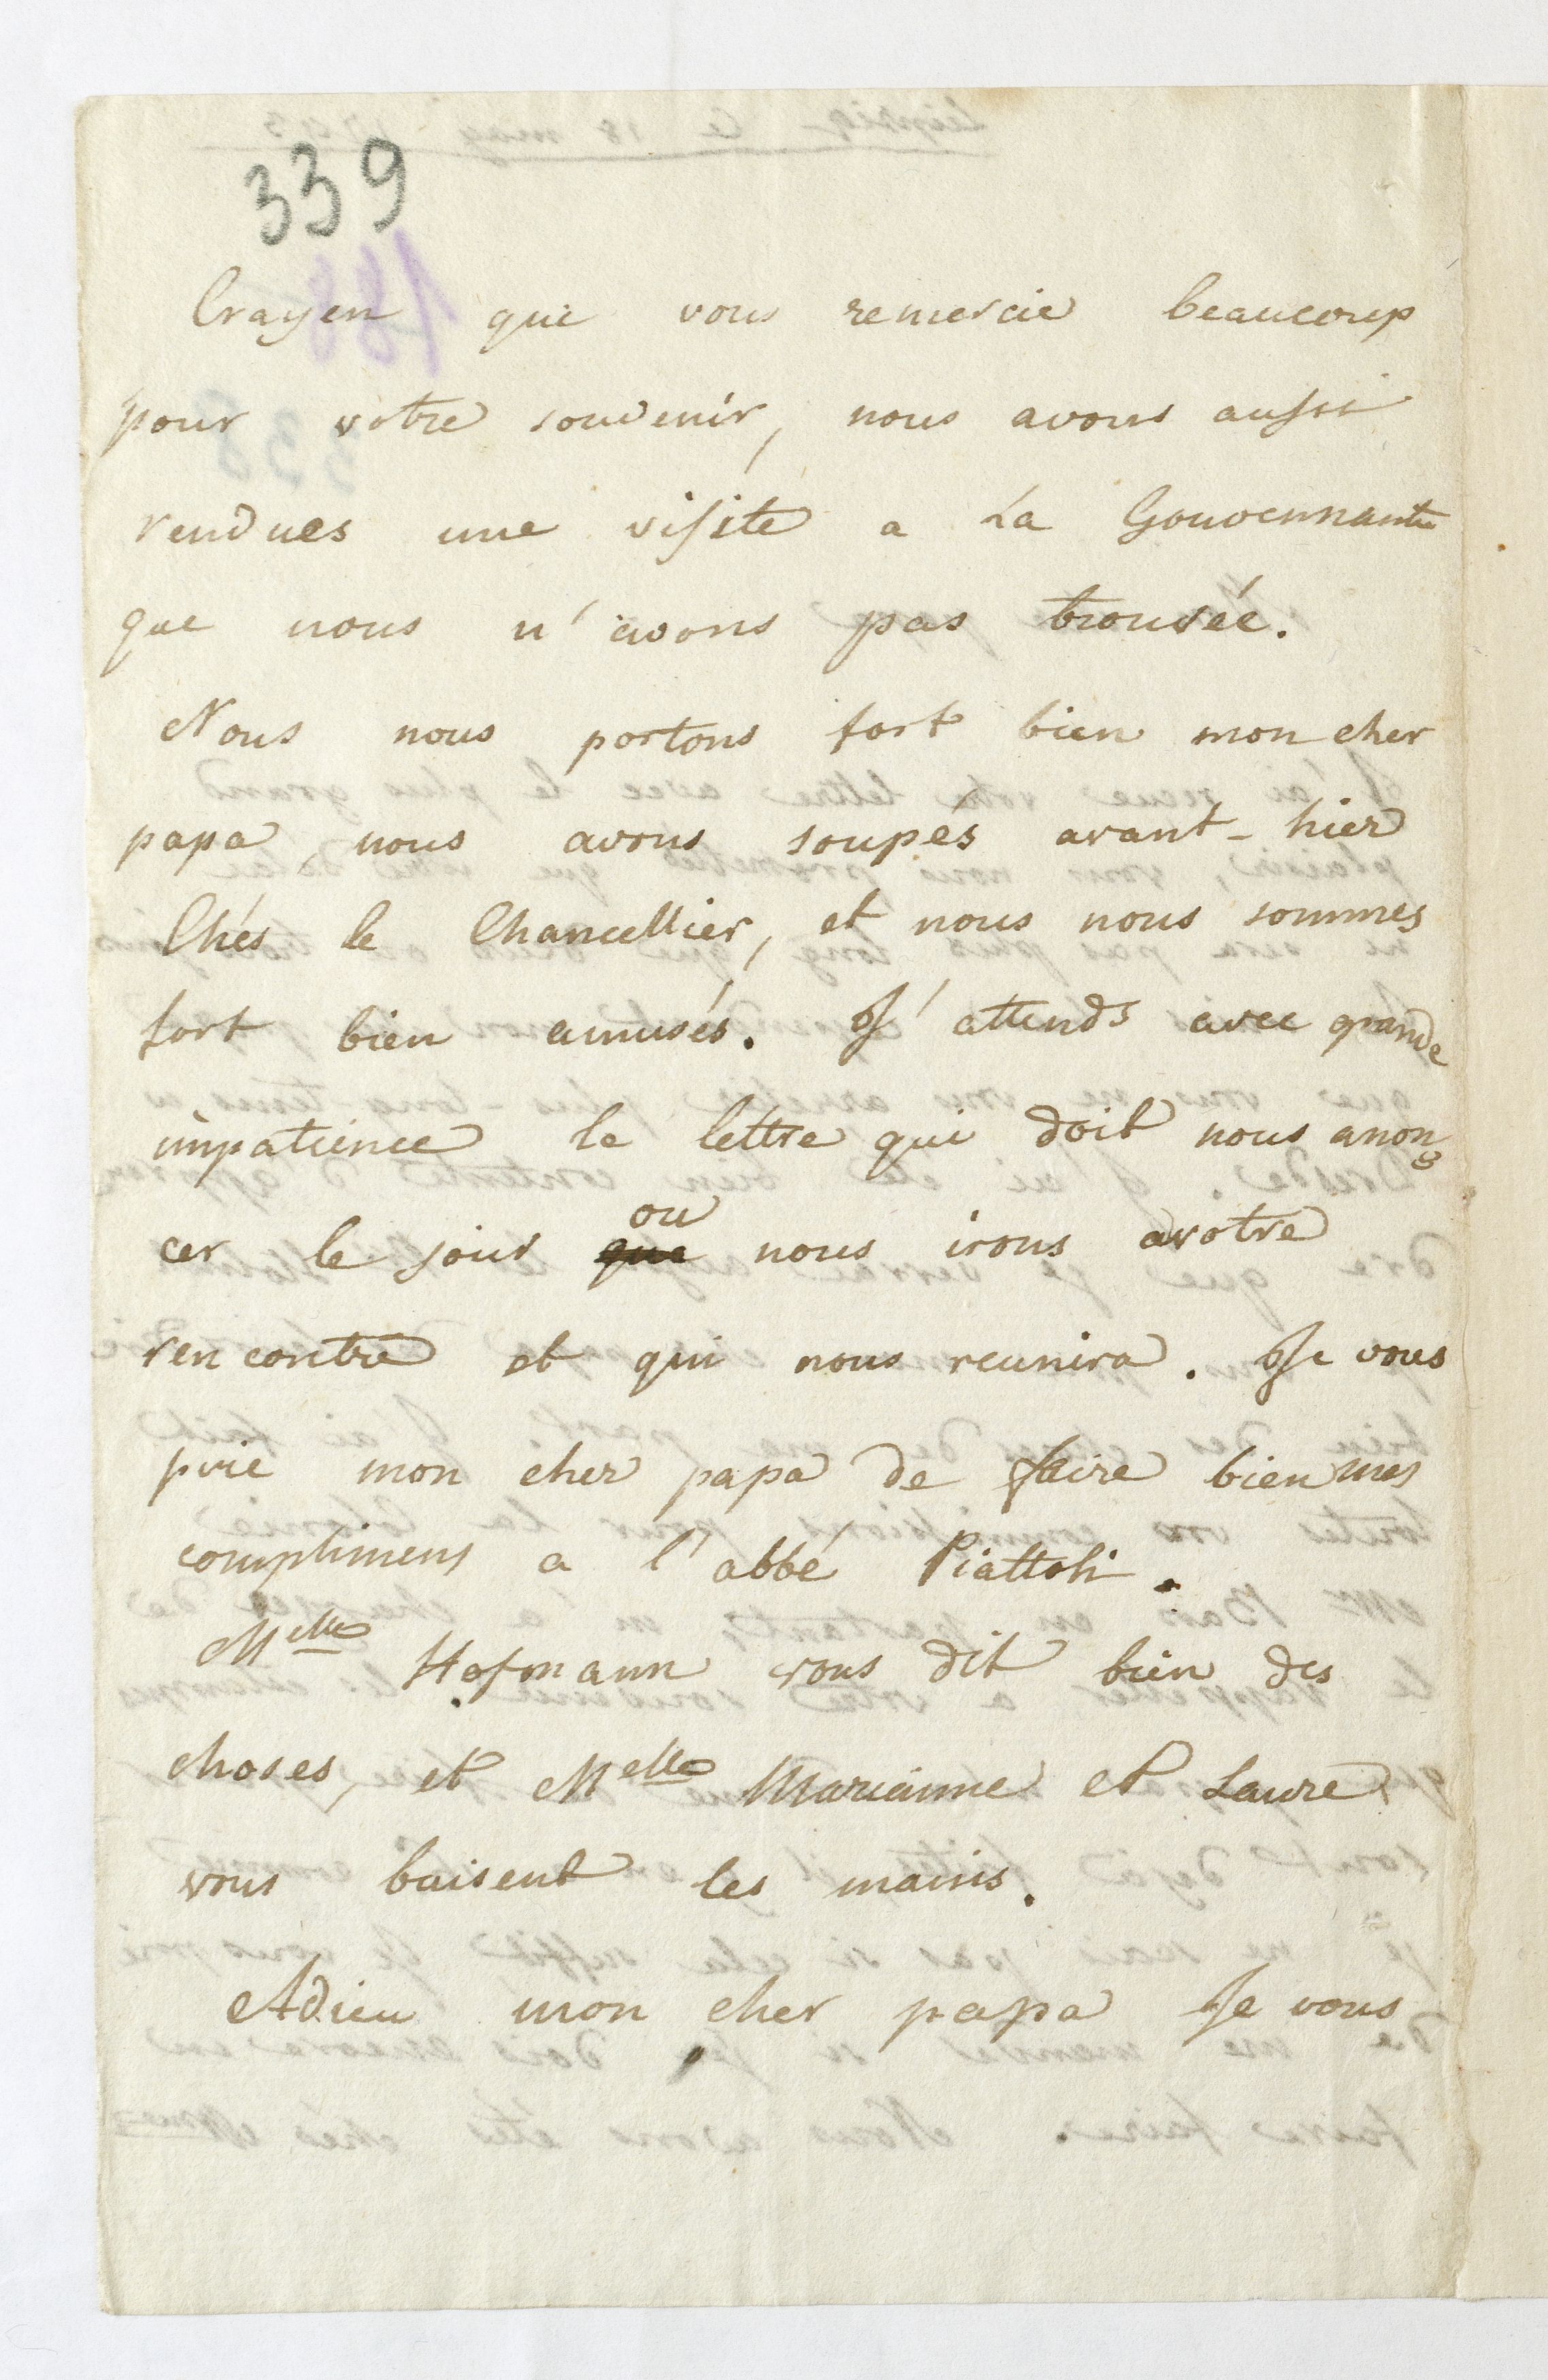 339
Crayen qui vous remercie beaucoup
pour votre souvenir, nous avons aussi
rendues une visite a La Gouvennante
que nous n'avons pas trouvée.
Nous nous portons fort bien mon cher
papa, nous avons soupés avant-hier
Chés le Chancellier, et nous nous sommes
fort bien amusés. J'attends avec grande
impatience le lettre qui doit nous anon
cer le jour que ou nous irons avotre
rencontre et qui nous reunira. Je vous
prie mon cher papa de faire bien mes
complimens a l'abbé Piattoli.
Melle Hofmann vous dit bien des
choses, et Melle Marianne et Laure
vous baisent les mains.
Adieu mon cher papa Je vous